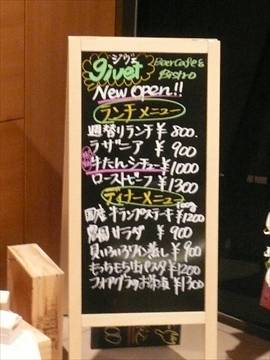 ジヴェ
givet Beer Cafe & Bistro
New open!!
ランチメニュー
週替りランチ ¥800.
ラザニア ¥900
牛たんシチュー ¥1000
ローストビーフ ¥1300
ディナーメニュー
国産牛ランプステーキ ¥1200
農園サラダ ¥900
貝いろいろワイン蒸し ¥900
もっちもち生パスタ ¥1200
フォアグラのお茶漬 ¥1300